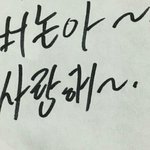 버논아~
사랑해~.